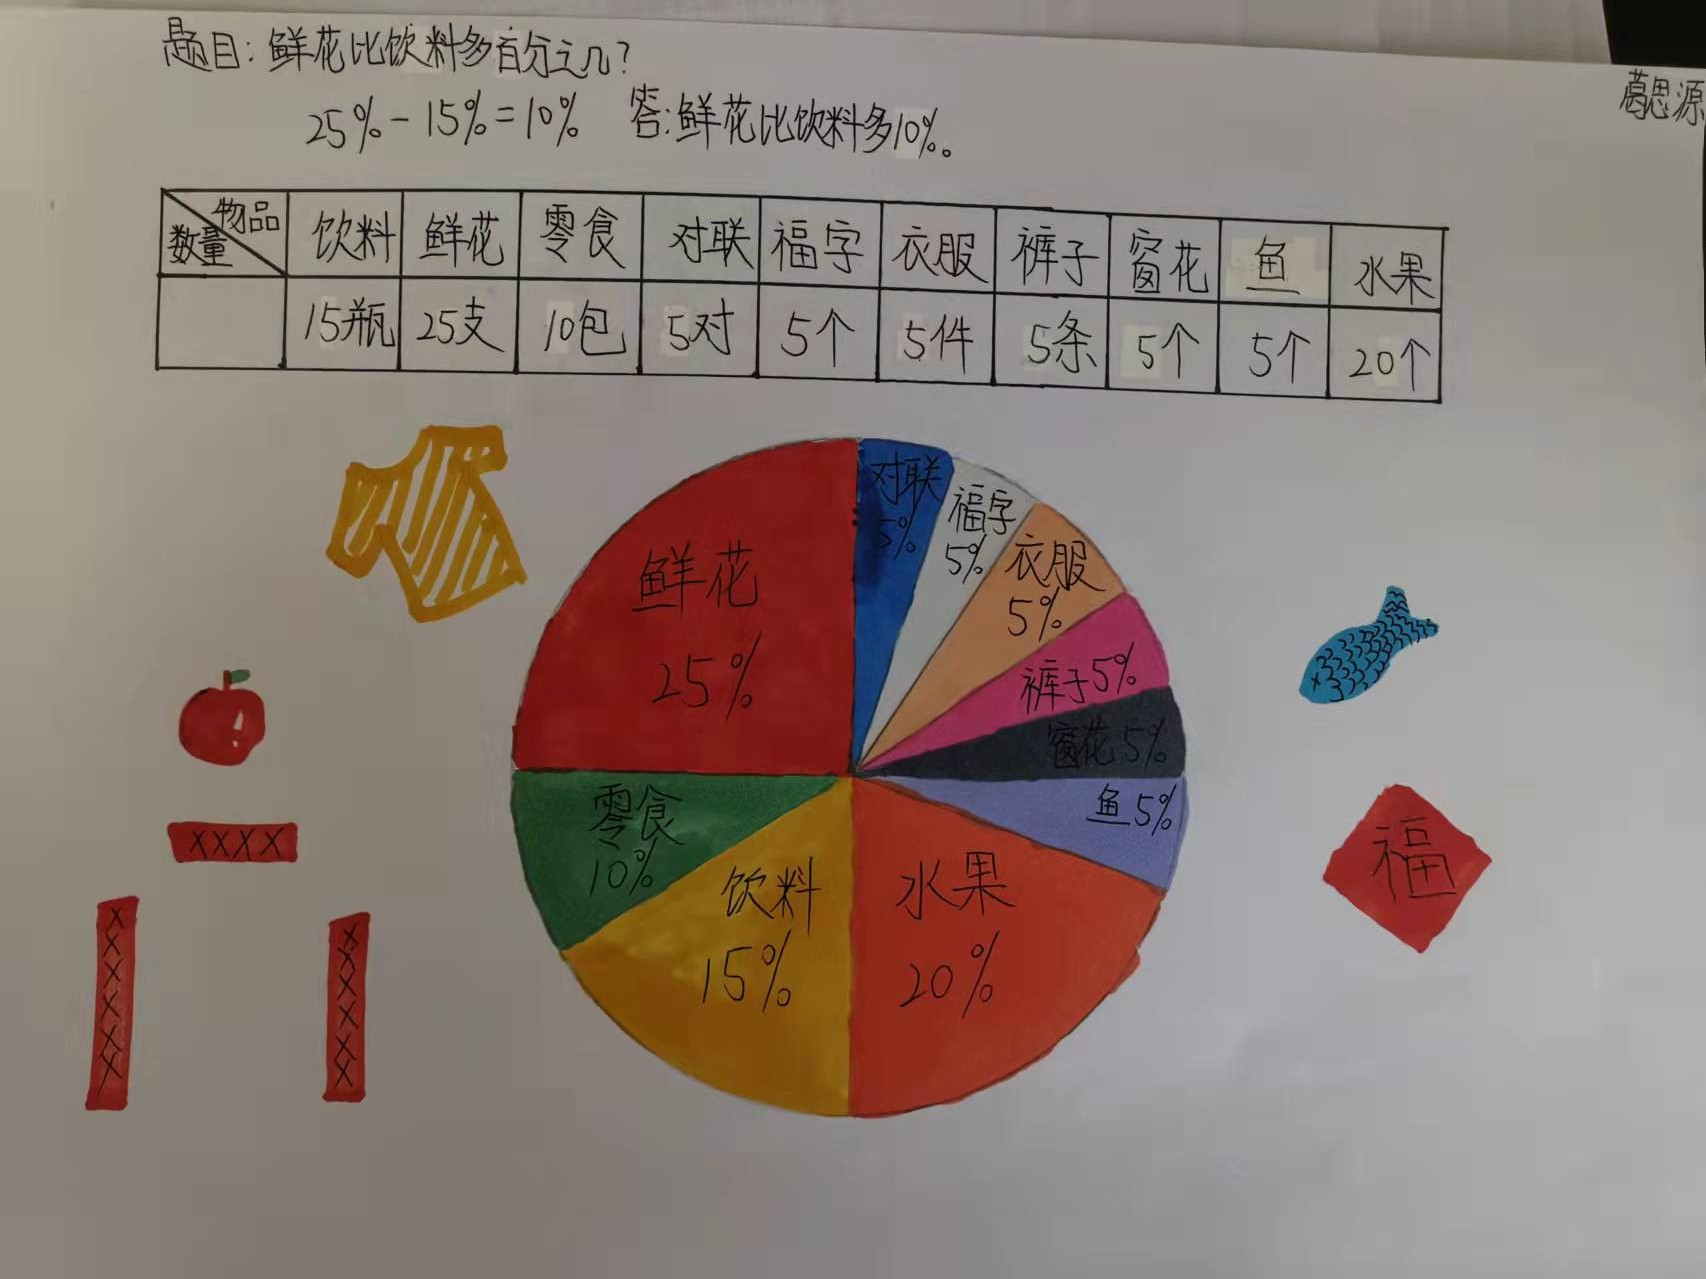 题目:鲜花比饮料多百分之几?
葛思源
25%-15%=10% 答:鲜花比饮料多10%。
物品 饮料 鲜花 零食 对联 福字 衣服 裤子 窗花 鱼 水果
数量 15瓶 25支 10包 5对 5个 5件 5条 5个 5个 20个
对联
5%
福字
5%
衣服
5%
裤子5%
窗花5%
鱼5%
水果
20%
饮料
15%
零食
10%
鲜花
25%
XXXX
XXXXXX
XXXXX
福